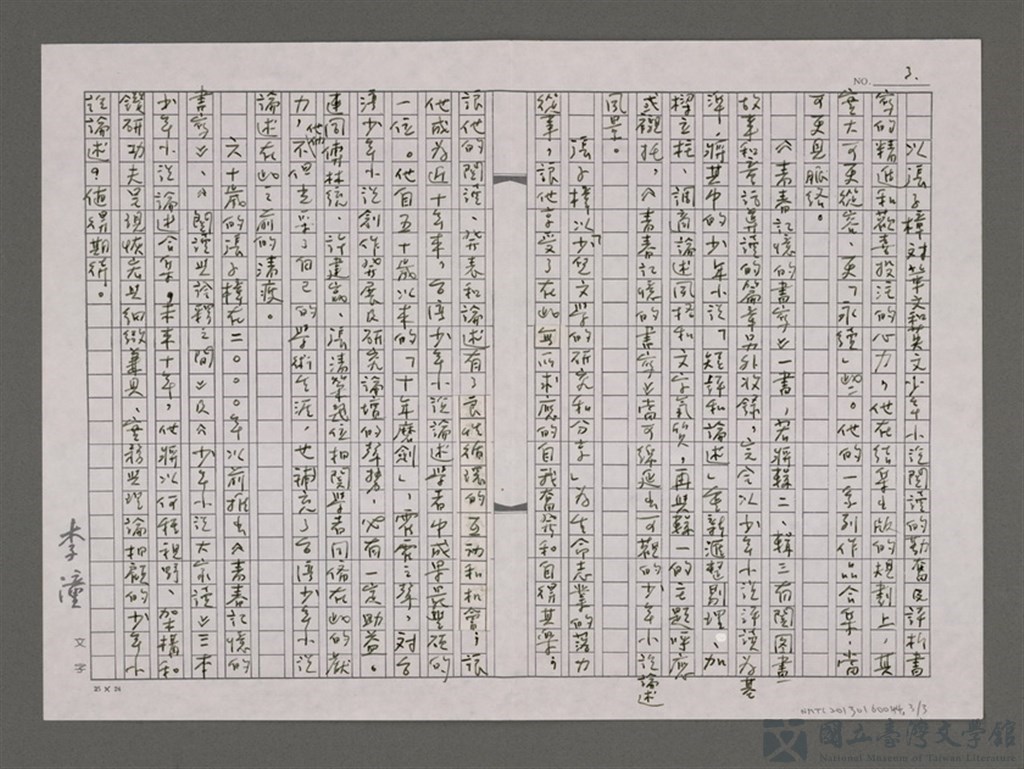 NO. 3.
以張子樟对華文和英文少年小說閱讀的勤奮及評析書
寫的精進和歡喜投注的心力，他在結集出版的規劃上，其
實大可更從容、更「永續」些。他的一系列作品合集，當
可更具脈絡。
《青春記憶的書寫》一書，若將輯二、輯三有關圖畫
故事和童話導讀的篇章另外收錄，完全以少年小說評讀為基
準，將其中的少年小說「短評和論述」重新滙整剔理、加
樑立柱、調商論述風格和文字氣質，再與輯一的主題呼應
或襯托，《青春記憶的書寫》當可綿延出可觀的少年小說論述
風景。
張子樟以「少兒文學的研究和分享」為生命志業的落力
從事，讓他享受了在此無所求應的自我奮發和自得其樂；
讓他的閱讀、發表和論述有了良性循環的互動和机會；讓
他成為近十年來，台湾少年小說論述學者中成果最豐碩的
一位。他自五十歲以來的「十年磨劍」，霍霍之聲，对台
湾少年小說創作發展及研究論壇的聲勢，必有一定助益。
連同傅林統、許建崑、張清榮幾位相關學者同儕在此的獻
力，他們不但豐采了自己的學術生涯，也補充了台湾少年小說
論述在此之前的清瘦。
六十歲的張子樟在二〇〇〇年以前推出《青春記憶的
書寫》、《閱讀與詮釋之間》及《少年小說大家讀》三本
少年小說論述合集。未來十年，他將以何種視野、架構和
鑽研功夫呈現恢宏與細緻兼具、實務與理論相顧的少年小
說論述？值得期待。
李潼
文 子
25 X 24
NMTL20130160044, 3/3
國立臺灣文學館
National Museum of Taiwan Literature